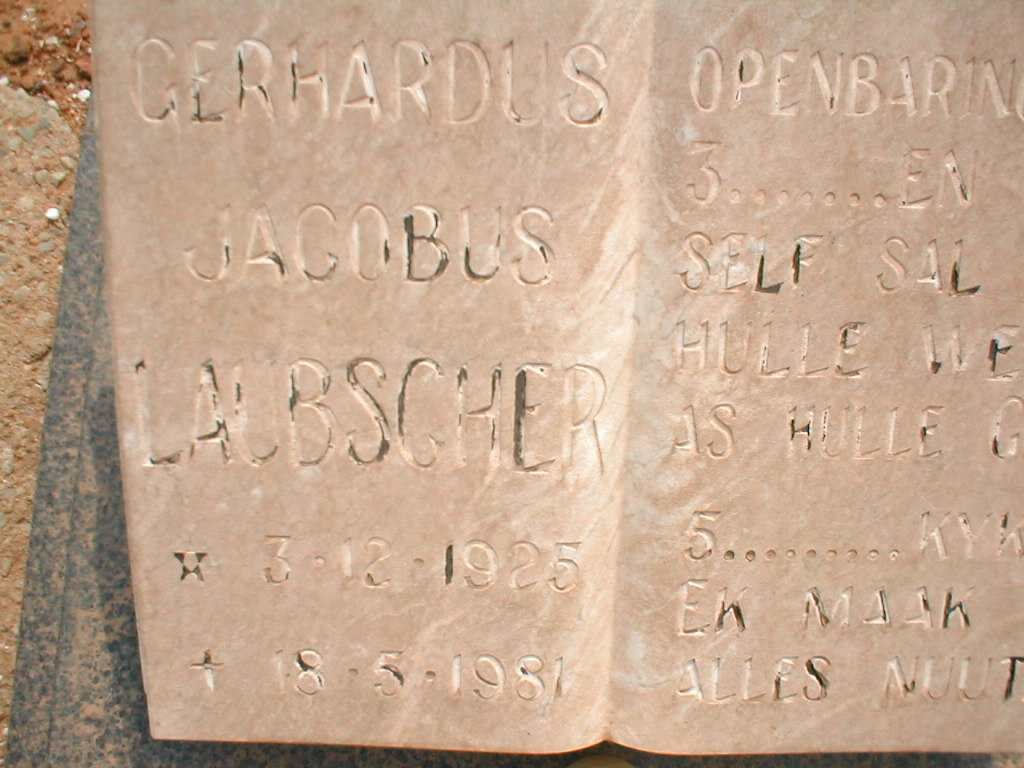 GERHARDUS
JACOBUS
LAUBSCHER
* 3·12·1925
† 18·5·1981
OPENBARING
3........EN
SELF SAL
HULLE WE
AS HULLE G
5.........KYK
EK MAAK
ALLES NUUT